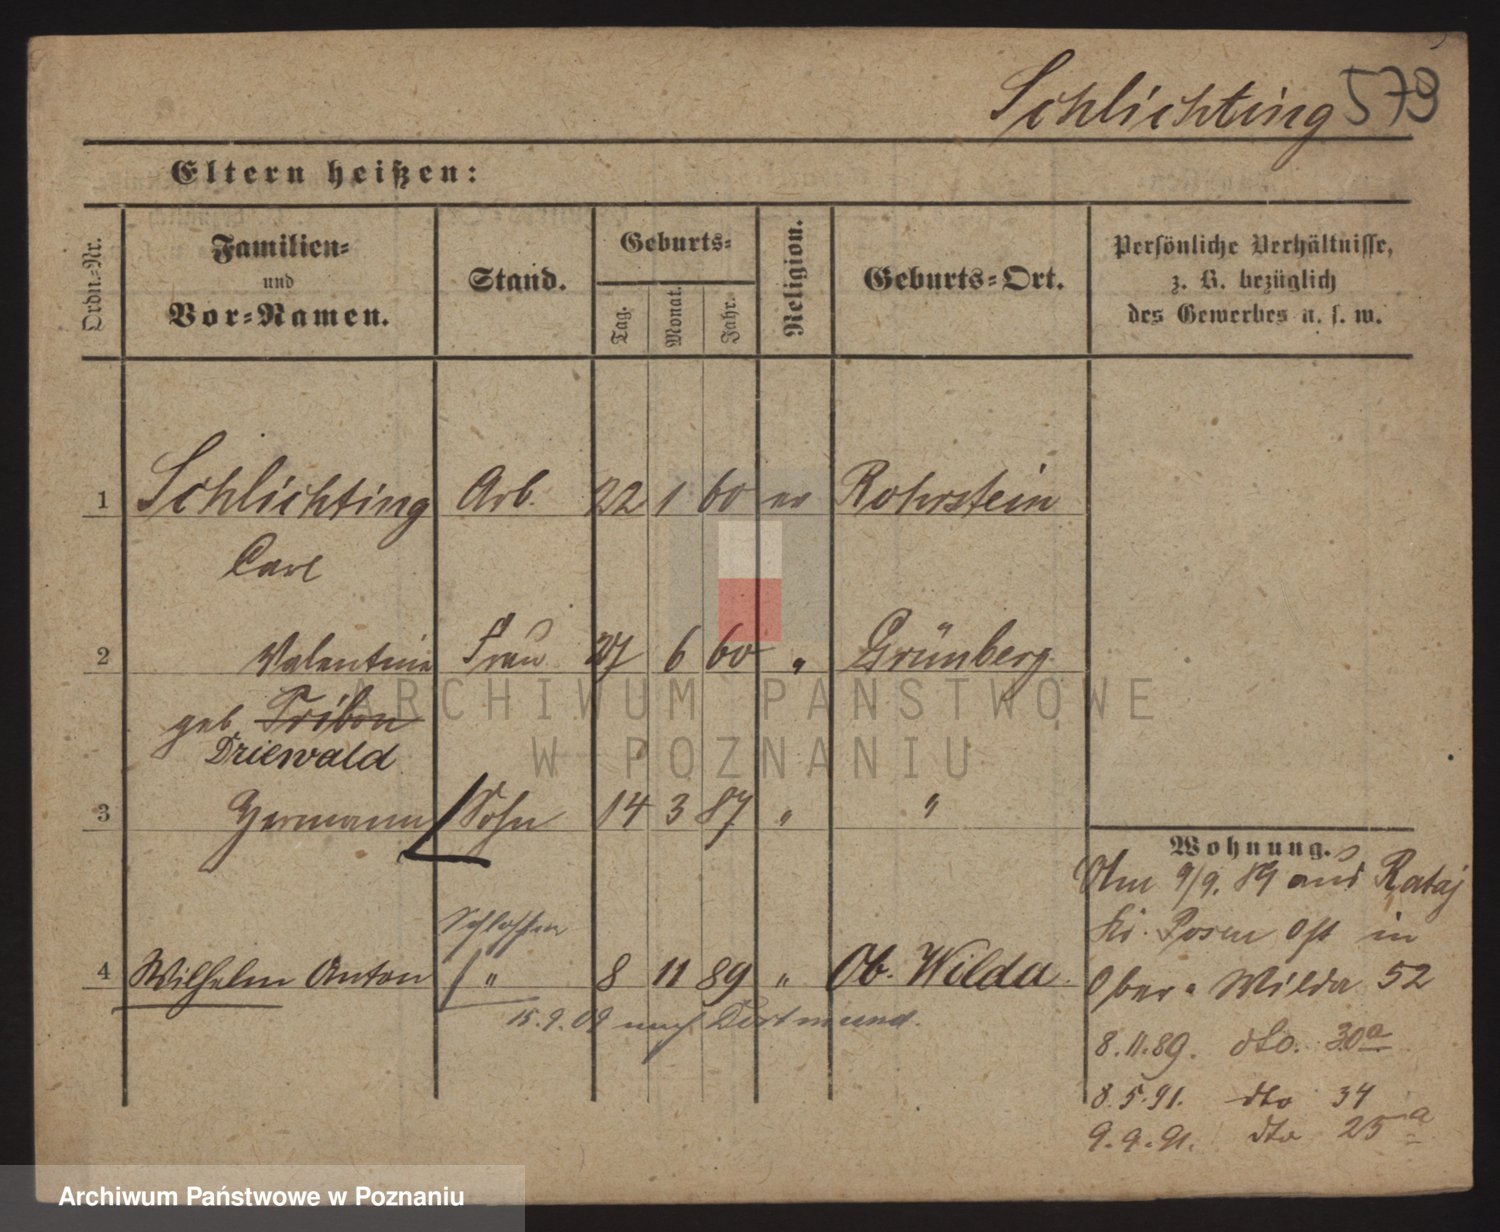 Schlichting 579
Eltern heißen:
Ordn.-Nr.
Familien-
und
Vor-Namen.
Stand.
Geburts-
Tag.
Monat.
Jahr.
Religion.
Geburts-Ort.
Persönliche Verhältnisse,
z. B. bezüglich
des Gewerbes u. s. w.
1 Schlichting Arb. 22 1 60 ev Rohrstein
Carl
2 Valentine Frau 27 6 60 " Grünberg
geb. Tribon
Driewald
3 Hermann Sohn 14 3 87 " "
Schlosser
4 Wilhelm Anton " 8 11 89 " Ob. Wilda
15.9.09 nach Dortmund.
Wohnung.
Am 9/9. 89 aus Rataj
Kr. Posen Ost in
Ober-Wilda 52
8.11.89. dto. 30a
8.5.91. dto 34
9.9.91. dto 25a
ARCHIWUM PAŃSTWOWE
W POZNANIU
Archiwum Państwowe w Poznaniu